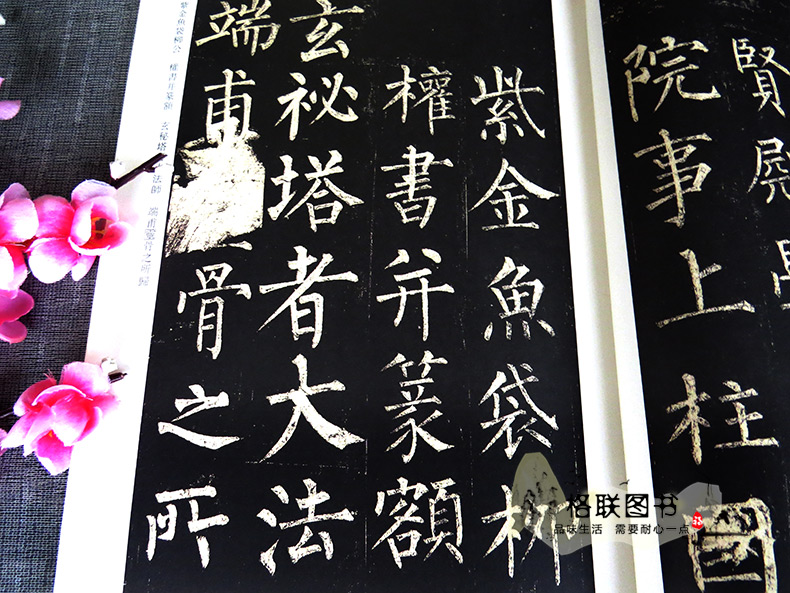 賢殿
院事上柱國
紫金魚袋柳
權書并篆額
玄祕塔者大法
端甫骨之所
紫金魚袋柳公 權書并篆額 玄秘塔 法師 端甫靈骨之所歸
格联图书
品味生活 需要耐心一点